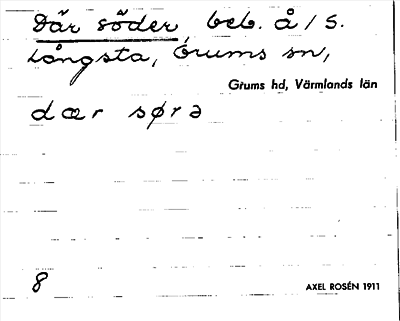 Där söder, beb. å / S.
Långsta, Grums sn,
Grums hd, Värmlands län
dær sørə
8
AXEL ROSÉN 1911